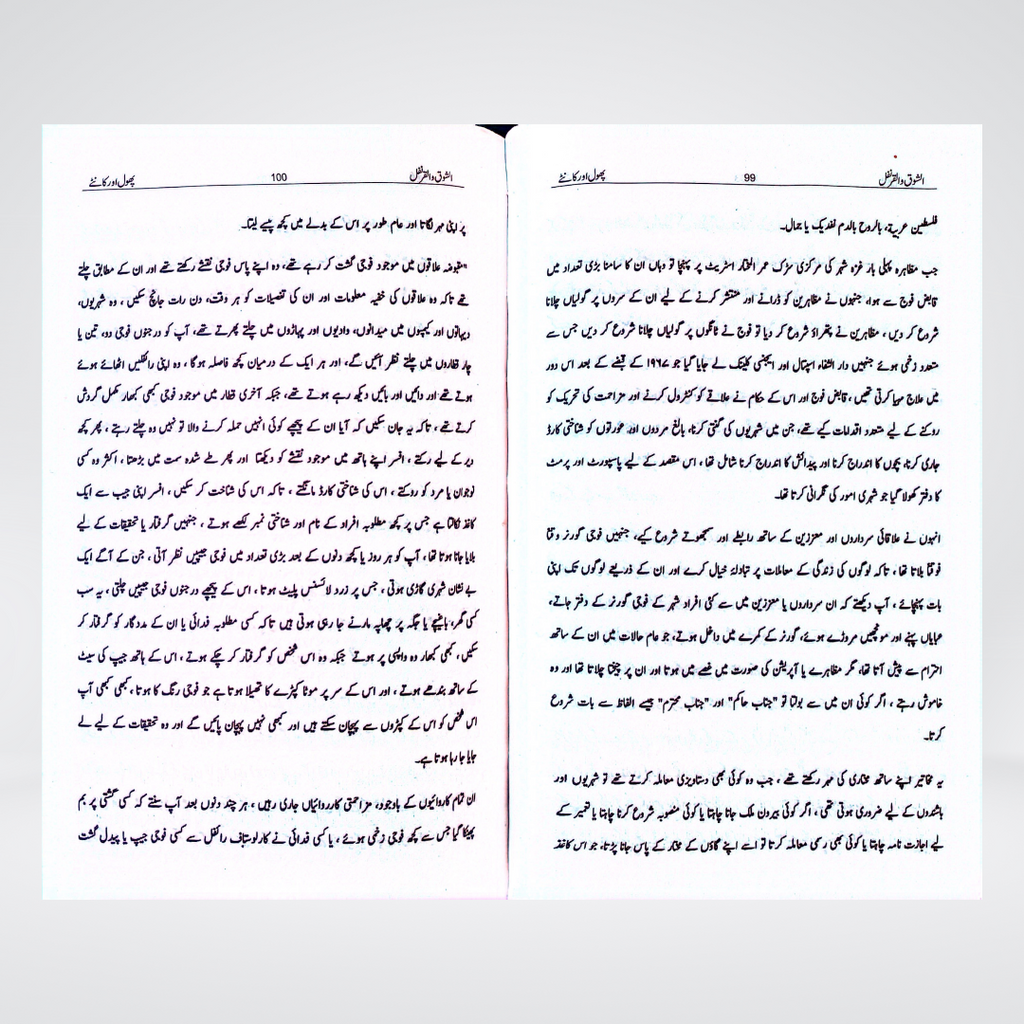 الشوق والقرنفل
99
پھول اور کانٹے
فلسطین عربیة، بالروح بالدم نفدیک یا جمال۔
جب مظاہرہ پہلی بار غزہ شہر کی مرکزی سڑک عمر المختار اسٹریٹ پر پہنچا تو وہاں ان کا سامنا بڑی تعداد میں
قابض فوج سے ہوا، جنہوں نے مظاہرین کو ڈرانے اور منتشر کرنے کے لیے ان کے سروں پر گولیاں چلانا
شروع کر دیں، مظاہرین نے پتھراؤ شروع کر دیا تو فوج نے ٹانگوں پر گولیاں چلانا شروع کر دیں جس سے
متعدد زخمی ہوئے جنہیں دار الشفاء اسپتال اور ایجنسی کلینک لے جایا گیا جو ۱۹۶۷ کے قبضے کے بعد اس دور
میں علاج مہیا کرتی تھیں، قابض فوج اور اس کے حکام نے علاقے کو کنٹرول کرنے اور مزاحمت کی تحریک کو
روکنے کے لیے متعدد اقدامات کیے تھے، جن میں شہریوں کی گنتی کرنا، بالغ مردوں اور عورتوں کو شناختی کارڈ
جاری کرنا، بچوں کا اندراج کرنا اور پیدائش کا اندراج کرنا شامل تھا، اس مقصد کے لیے پاسپورٹ اور پرمٹ
کا دفتر کھولا گیا جو شہری امور کی نگرانی کرتا تھا۔
انہوں نے علاقائی سرداروں اور معززین کے ساتھ رابطے اور سمجھوتے شروع کیے، جنہیں فوجی گورنر وقتا
فوقتا بلاتا تھا، تاکہ لوگوں کی زندگی کے معاملات پر تبادلۂ خیال کرے اور ان کے ذریعے لوگوں تک اپنی
بات پہنچائے، آپ دیکھتے کہ ان سرداروں یا معززین میں سے کئی افراد شہر کے فوجی گورنر کے دفتر جاتے،
عبایاں پہنے اور مونچھیں مروڑے ہوئے، گورنر کے کمرے میں داخل ہوتے، جو عام حالات میں ان کے ساتھ
احترام سے پیش آتا تھا، مگر مظاہرے یا آپریشن کی صورت میں غصے میں ہوتا اور ان پر چیختا چلاتا تھا اور وہ
خاموش رہتے، اگر کوئی ان میں سے بولتا تو "جناب حاکم" اور "جناب محترم" جیسے الفاظ سے بات شروع
کرتا۔
یہ مخاتیر اپنے ساتھ مختاری کی مہر رکھتے تھے، جب وہ کوئی بھی دستاویزی معاملہ کرتے تھے تو شہریوں اور
باشندوں کے لیے ضروری ہوتی تھی، اگر کوئی بیرون ملک جانا چاہتا یا کوئی منصوبہ شروع کرنا چاہتا یا تعمیر کے
لیے اجازت نامہ چاہتا یا کوئی بھی رسمی معاملہ کرتا تو اسے اپنے گاؤں کے مختار کے پاس جانا پڑتا، جو اس کاغذ
الشوق والقرنفل
100
پھول اور کانٹے
پر اپنی مہر لگاتا اور عام طور پر اس کے بدلے میں کچھ پیسے لیتا۔
مقبوضہ علاقوں میں موجود فوجی گشت کر رہے تھے، وہ اپنے پاس فوجی نقشے رکھتے تھے اور ان کے مطابق چلتے
تھے تاکہ وہ علاقوں کی خفیہ معلومات اور ان کی تفصیلات کو ہر وقت، دن رات جانچ سکیں، وہ شہریوں،
دیہاتوں اور کیمپوں میں میدانوں، وادیوں اور پہاڑوں میں چلتے پھرتے تھے، آپ کو درجنوں فوجی دو، تین یا
چار قطاروں میں چلتے نظر آئیں گے، اور ہر ایک کے درمیان کچھ فاصلہ ہوگا، وہ اپنی رائفلیں اٹھائے ہوئے
ہوتے تھے اور دائیں اور بائیں دیکھ رہے ہوتے تھے، جبکہ آخری قطار میں موجود فوجی کبھی کبھار مکمل گردش
کرتے تھے، تاکہ یہ جان سکیں کہ آیا ان کے پیچھے کوئی انہیں حملہ کرنے والا تو نہیں وہ چلتے رہتے، پھر کچھ
دیر کے لیے رکتے، افسر اپنے ہاتھ میں موجود نقشے کو دیکھتا اور پھر طے شدہ سمت میں بڑھتا، اکثر وہ کسی
نوجوان یا مرد کو روکتے، اس کی شناختی کارڈ مانگتے، تاکہ اس کی شناخت کر سکیں، افسر اپنی جیب سے ایک
کاغذ نکالتا ہے جس پر کچھ مطلوبہ افراد کے نام اور شناختی نمبر لکھے ہوتے، جنہیں گرفتار یا تحقیقات کے لیے
بلایا جانا ہوتا تھا، آپ کو ہر روز یا کچھ دنوں کے بعد بڑی تعداد میں فوجی جیپیں نظر آتی، جن کے آگے ایک
بے نشان شہری گاڑی ہوتی، جس پر زرد لائسنس پلیٹ ہوتا، اس کے پیچھے درجنوں فوجی جیپیں چلتی، یہ سب
کسی گھر، باغیچے یا جگہ پر چھاپہ مارنے جا رہی ہوتی ہیں تاکہ کسی مطلوبہ فدائی یا ان کے مددگار کو گرفتار کر
سکیں، کبھی کبھار وہ واپسی پر ہوتے جبکہ وہ اس شخص کو گرفتار کر چکے ہوتے، اس کے ہاتھ جیپ کی سیٹ
کے ساتھ بندھے ہوتے، اور اس کے سر پر موٹا کپڑے کا تھیلا ہوتا ہے جو فوجی رنگ کا ہوتا، کبھی کبھی آپ
اس شخص کو اس کے کپڑوں سے پہچان سکتے ہیں اور کبھی نہیں پہچان پائیں گے اور وہ تحقیقات کے لیے لے
جایا جا رہا ہوتا ہے۔
ان تمام کاروائیوں کے باوجود، مزاحمتی کارروائیاں جاری رہیں، ہر چند دنوں بعد آپ سنتے کہ کسی گشتی پر بم
پھینکا گیا جس سے کچھ فوجی زخمی ہوئے، یا کسی فدائی نے کارلوستاف رائفل سے کسی فوجی جیپ یا پیدل گشت